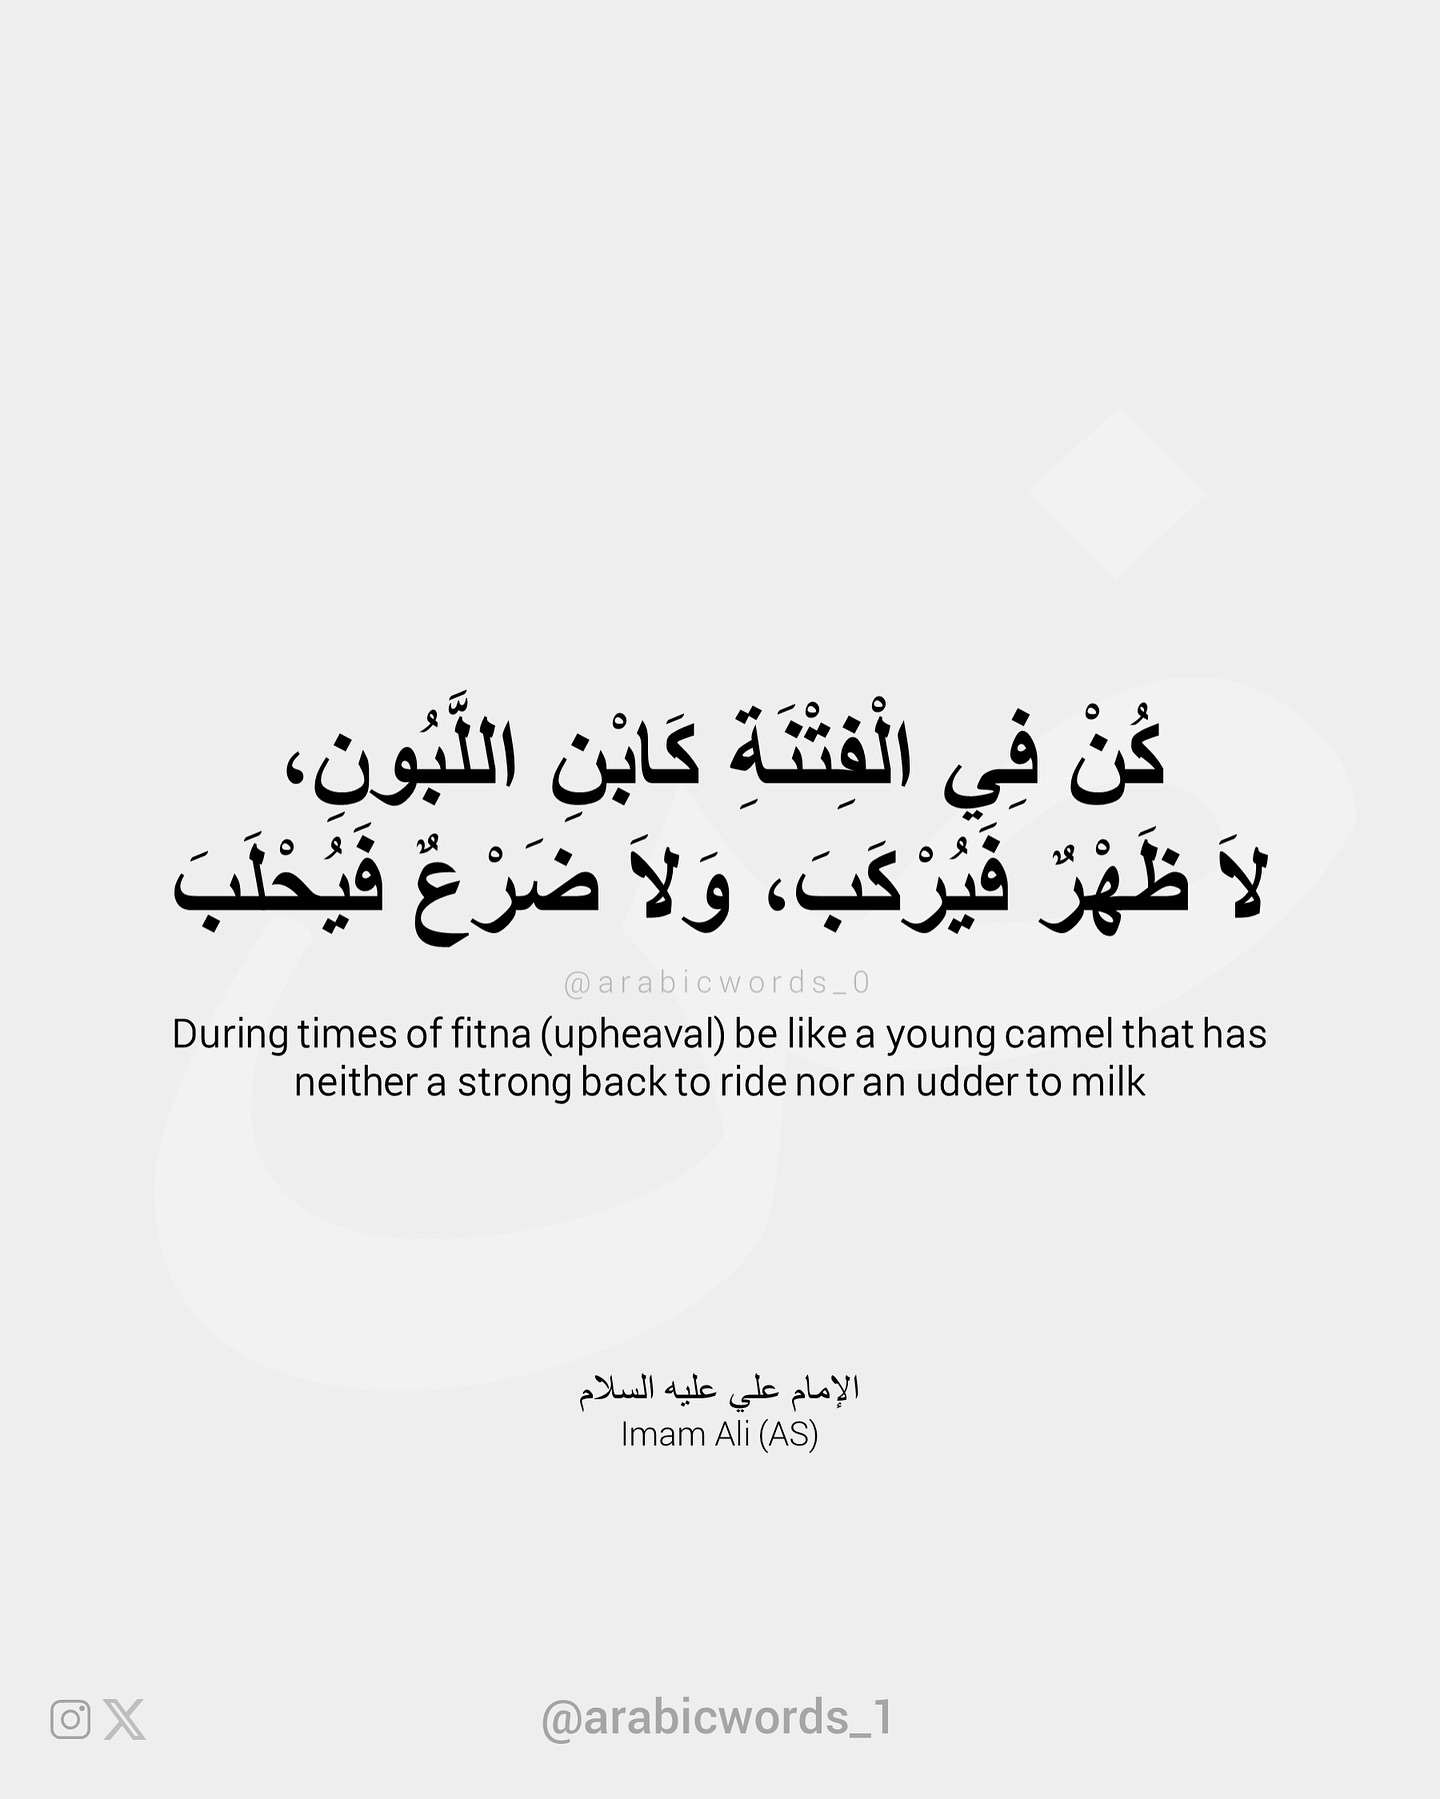 كُنْ فِي الْفِتْنَةِ كَابْنِ اللَّبُونِ،
لاَ ظَهْرٌ فَيُرْكَبَ، وَلاَ ضَرْعٌ فَيُحْلَبَ
@arabicwords_0
During times of fitna (upheaval) be like a young camel that has
neither a strong back to ride nor an udder to milk
الإمام علي عليه السلام
Imam Ali (AS)
@arabicwords_1